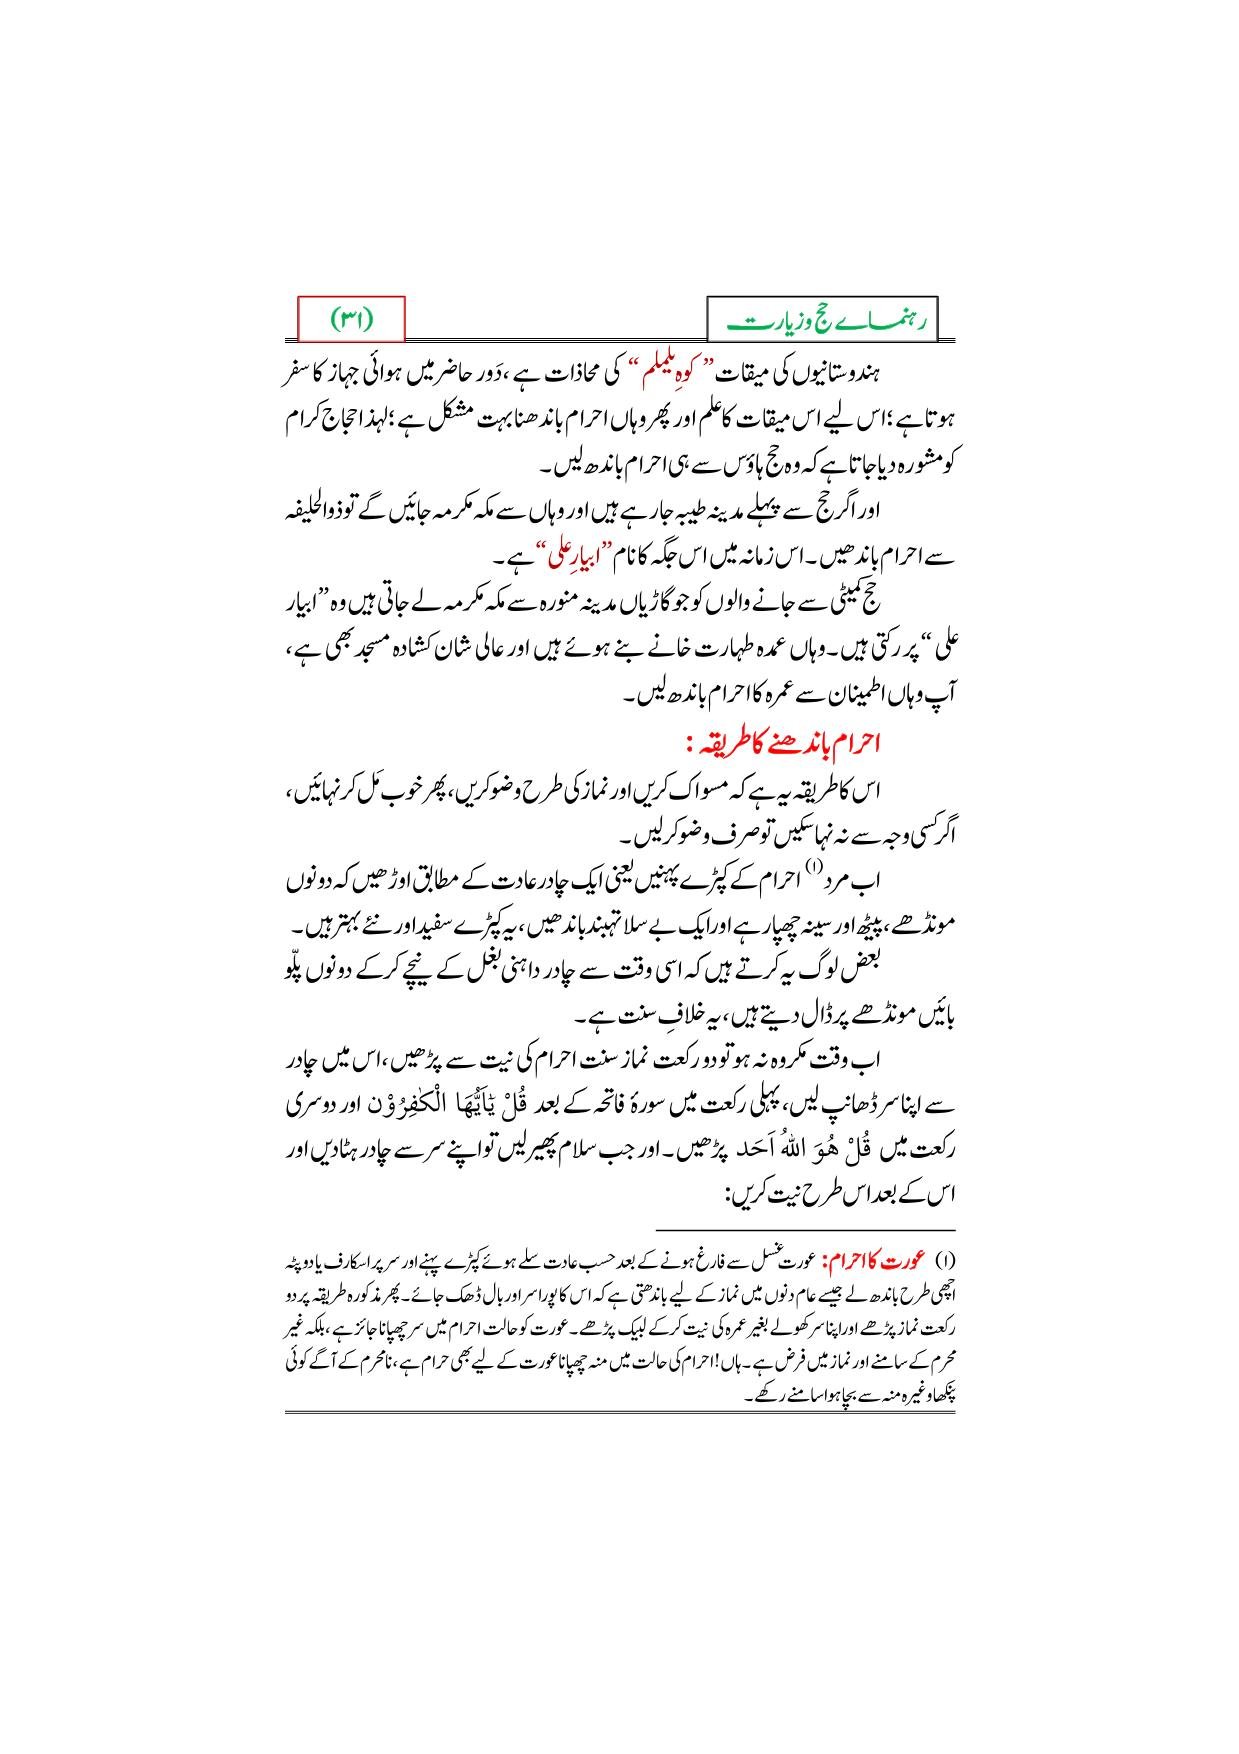 رہنماے حج وزیارت
(۳۱)
ہندوستانیوں کی میقات ”کوہِ یلملم“ کی محاذات ہے، دَور حاضر میں ہوائی جہاز کا سفر
ہوتا ہے؛ اس لیے اس میقات کا علم اور پھر وہاں احرام باندھنا بہت مشکل ہے؛ لہذا حجاج کرام
کو مشورہ دیا جاتا ہے کہ وہ حج ہاؤس سے ہی احرام باندھ لیں۔
اور اگر حج سے پہلے مدینہ طیبہ جارہے ہیں اور وہاں سے مکہ مکرمہ جائیں گے تو ذوالحلیفہ
سے احرام باندھیں۔ اس زمانہ میں اس جگہ کا نام ”ابیارِ علی“ ہے۔
حج کمیٹی سے جانے والوں کو جو گاڑیاں مدینہ منورہ سے مکہ مکرمہ لے جاتی ہیں وہ ”ابیار
علی“ پر رکتی ہیں۔ وہاں عمدہ طہارت خانے بنے ہوئے ہیں اور عالی شان کشادہ مسجد بھی ہے،
آپ وہاں اطمینان سے عمرہ کا احرام باندھ لیں۔
احرام باندھنے کا طریقہ:
اس کا طریقہ یہ ہے کہ مسواک کریں اور نماز کی طرح وضو کریں، پھر خوب مَل کر نہائیں،
اگر کسی وجہ سے نہ نہا سکیں تو صرف وضو کرلیں۔
اب مرد(۱) احرام کے کپڑے پہنیں یعنی ایک چادر عادت کے مطابق اوڑھیں کہ دونوں
مونڈھے، پیٹھ اور سینہ چھپا رہے اور ایک بے سلا تہبند باندھیں، یہ کپڑے سفید اور نئے بہتر ہیں۔
بعض لوگ یہ کرتے ہیں کہ اسی وقت سے چادر داہنی بغل کے نیچے کرکے دونوں پلّو
بائیں مونڈھے پر ڈال دیتے ہیں، یہ خلافِ سنت ہے۔
اب وقت مکروہ نہ ہو تو دو رکعت نماز سنت احرام کی نیت سے پڑھیں، اس میں چادر
سے اپنا سر ڈھانپ لیں، پہلی رکعت میں سورۂ فاتحہ کے بعد قُلْ يٰۤاَيُّهَا الْكٰفِرُوْن اور دوسری
رکعت میں قُلْ هُوَ اللهُ اَحَد پڑھیں۔ اور جب سلام پھیر لیں تو اپنے سر سے چادر ہٹادیں اور
اس کے بعد اس طرح نیت کریں:
(۱) عورت کا احرام: عورت غسل سے فارغ ہونے کے بعد حسب عادت سلے ہوئے کپڑے پہنے اور سر پر اسکارف یا دوپٹہ
اچھی طرح باندھ لے جیسے عام دنوں میں نماز کے لیے باندھتی ہے کہ اس کا پورا سر اور بال ڈھک جائے۔ پھر مذکورہ طریقہ پر دو
رکعت نماز پڑھے اور اپنا سر کھولے بغیر عمرہ کی نیت کرکے لبیک پڑھے۔ عورت کو حالت احرام میں سر چھپانا جائز ہے، بلکہ غیر
محرم کے سامنے اور نماز میں فرض ہے۔ ہاں! احرام کی حالت میں منہ چھپانا عورت کے لیے بھی حرام ہے، نامحرم کے آگے کوئی
پنکھا وغیرہ منہ سے بچا ہوا سامنے رکھے۔